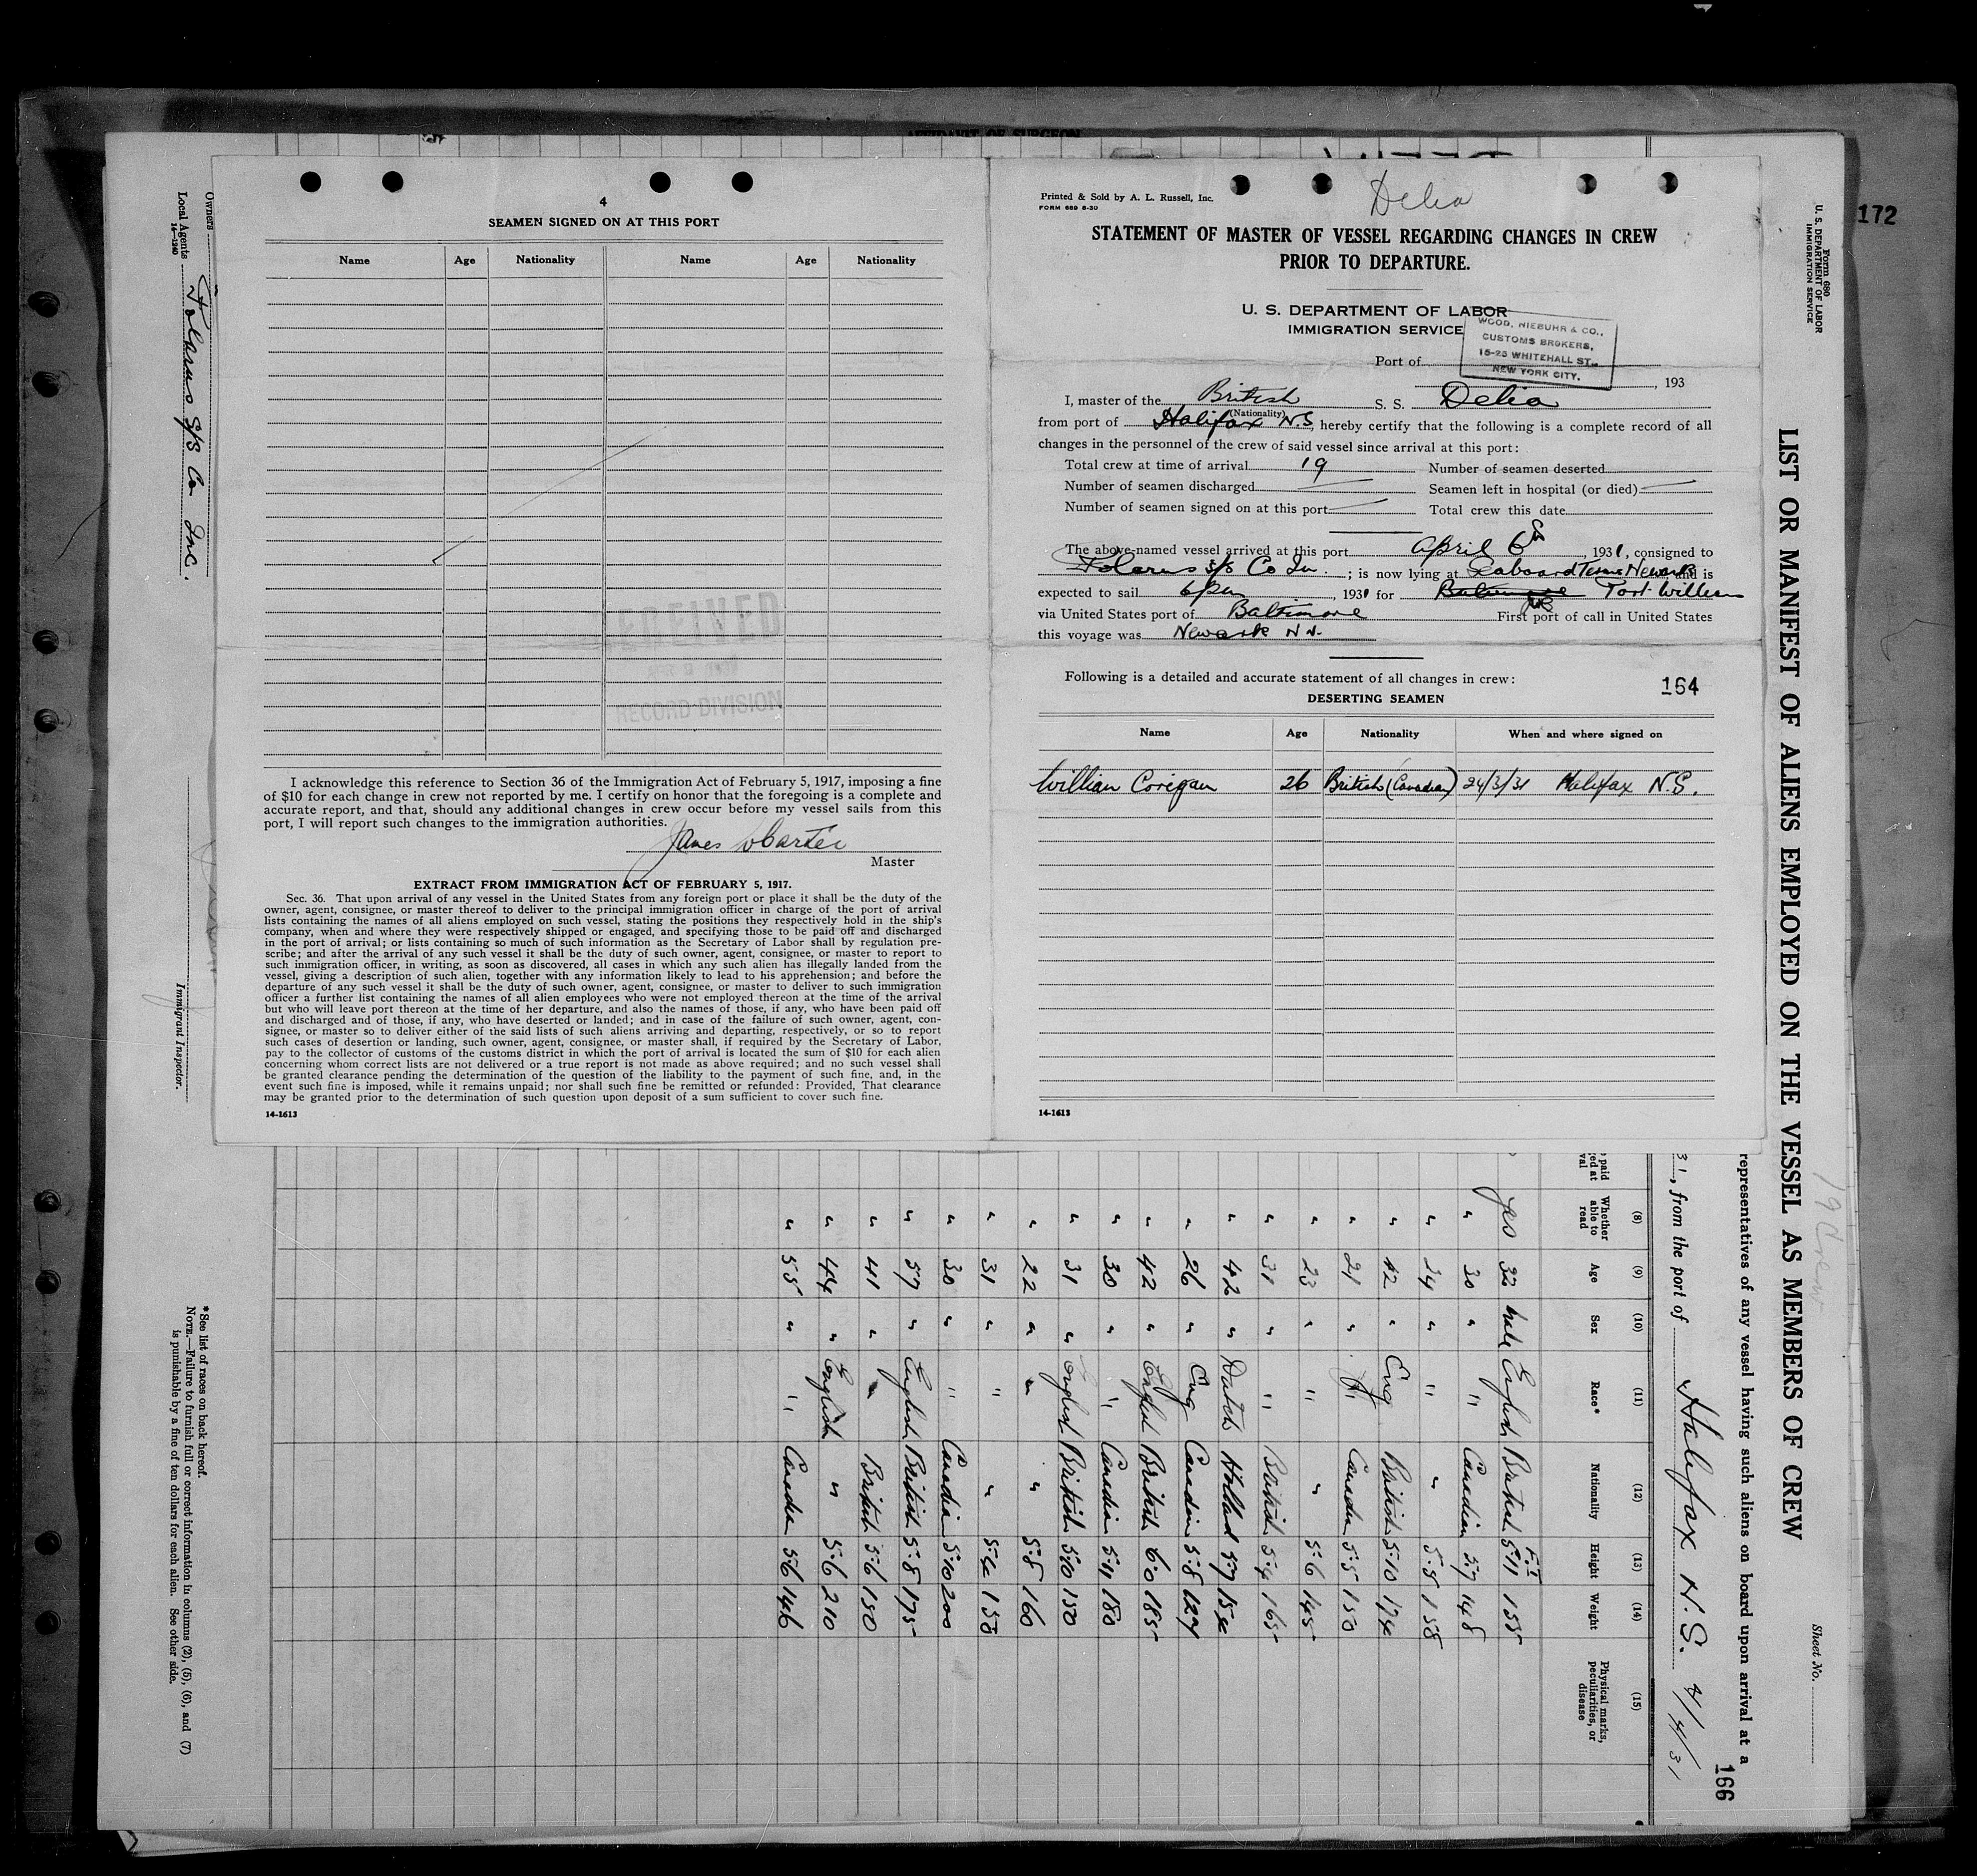 AFFIDAVIT OF SURGEON
172
4
SEAMEN SIGNED ON AT THIS PORT
Name Age Nationality Name Age Nationality
RECEIVED
RECORD DIVISION
I acknowledge this reference to Section 36 of the Immigration Act of February 5, 1917, imposing a fine
of $10 for each change in crew not reported by me. I certify on honor that the foregoing is a complete and
accurate report, and that, should any additional changes in crew occur before my vessel sails from this
port, I will report such changes to the immigration authorities.
James Carter
Master
EXTRACT FROM IMMIGRATION ACT OF FEBRUARY 5, 1917.
Sec. 36. That upon arrival of any vessel in the United States from any foreign port or place it shall be the duty of the
owner, agent, consignee, or master thereof to deliver to the principal immigration officer in charge of the port of arrival
lists containing the names of all aliens employed on such vessel, stating the positions they respectively hold in the ship's
company, when and where they were respectively shipped or engaged, and specifying those to be paid off and discharged
in the port of arrival; or lists containing so much of such information as the Secretary of Labor shall by regulation pre-
scribe; and after the arrival of any such vessel it shall be the duty of such owner, agent, consignee, or master to report to
such immigration officer, in writing, as soon as discovered, all cases in which any such alien has illegally landed from the
vessel, giving a description of such alien, together with any information likely to lead to his apprehension; and before the
departure of any such vessel it shall be the duty of such owner, agent, consignee, or master to deliver to such immigration
officer a further list containing the names of all alien employees who were not employed thereon at the time of the arrival
but who will leave port thereon at the time of her departure, and also the names of those, if any, who have been paid off
and discharged and of those, if any, who have deserted or landed; and in case of the failure of such owner, agent, con-
signee, or master so to deliver either of the said lists of such aliens arriving and departing, respectively, or so to report
such cases of desertion or landing, such owner, agent, consignee, or master shall, if required by the Secretary of Labor,
pay to the collector of customs of the customs district in which the port of arrival is located the sum of $10 for each alien
concerning whom correct lists are not delivered or a true report is not made as above required; and no such vessel shall
be granted clearance pending the determination of the question of the liability to the payment of such fine, and, in the
event such fine is imposed, while it remains unpaid; nor shall such fine be remitted or refunded: Provided, That clearance
may be granted prior to the determination of such question upon deposit of a sum sufficient to cover such fine.
14-1613
Printed & Sold by A. L. Russell, Inc.
FORM 689 8-30
Delia
STATEMENT OF MASTER OF VESSEL REGARDING CHANGES IN CREW
PRIOR TO DEPARTURE.
U. S. DEPARTMENT OF LABOR
IMMIGRATION SERVICE
WOOD, NIEBUHR & CO.,
CUSTOMS BROKERS,
15-25 WHITEHALL ST.,
NEW YORK CITY.
Port of
, 193
I, master of the British S. S. Delia
(Nationality)
from port of Halifax N.S, hereby certify that the following is a complete record of all
changes in the personnel of the crew of said vessel since arrival at this port:
Total crew at time of arrival 19 Number of seamen deserted
Number of seamen discharged Seamen left in hospital (or died)
Number of seamen signed on at this port Total crew this date
The above-named vessel arrived at this port April 6th, 1931, consigned to
S/S Co Inc. ; is now lying at Seaboard Term Newark and is
expected to sail 6 pm, 1931 for Baltimore Fort William
via United States port of Baltimore First port of call in United States
this voyage was Newark N.J.
Following is a detailed and accurate statement of all changes in crew:
164
DESERTING SEAMEN
Name Age Nationality When and where signed on
William Corigan 26 British (Canadian) 24/3/31 Halifax N.S.
14-1613
Form 680
U. S. DEPARTMENT OF LABOR
IMMIGRATION SERVICE
Sheet No.
19 Crew
LIST OR MANIFEST OF ALIENS EMPLOYED ON THE VESSEL AS MEMBERS OF CREW
representatives of any vessel having such aliens on board upon arrival at a
166
31, from the port of Halifax N.S. 4/4/31
(8) (9) (10) (11) (12) (13) (14) (15)
paid
ed at
val
Whether able to read Age Sex Race* Nationality Height Weight Physical marks, peculiarities, or disease
F. I
yes 32 Male English British 5-11 155
" 30 " " Canadian 5-7 148
" 24 " " " 5-8 158
" 42 " Eng British 5-10 174
" 21 " " Canadian 5-5 150
" 23 " " " 5-6 145
" 31 " " British 5-4 165
" 42 " Dutch Holland 5-7 154
" 26 " Eng Canadian 5-8 127
" 42 " English British 6-0 185
" 30 " " Canadian 5-11 180
" 31 " English British 5-10 150
" 22 " " " 5-8 160
" 31 " " " 5-6 150
" 30 " " Canadian 5-10 200
" 57 " English British 5-8 175
" 41 " " British 5-6 150
" 44 " English " 5-6 210
" 55 " " Canadian 5-6 146
Owners
Local Agents S/S Co Inc.
14-1240
Immigrant Inspector.
*See list of races on back hereof.
NOTE.—Failure to furnish full or correct information in columns (2), (5), (6), and (7)
is punishable by a fine of ten dollars for each alien. See other side.